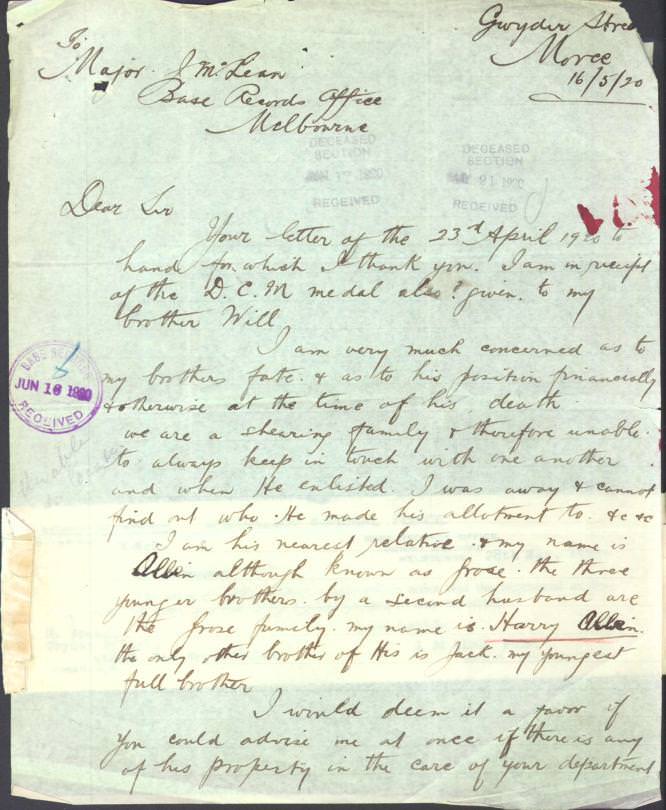 Gwydir Stree
Moree
16/5/20
To
Major J McLean
Base Records Office
Melbourne
DECEASED
SECTION
RECEIVED
DECEASED
SECTION
21 1920
RECEIVED
Dear Sir
Your letter of the 23rd April 1920 to
hand for which I thank you. I am in receipt
of the D.C.M medal also given to my
brother Will
I am very much concerned as to
my brothers fate. & as to his position financially
& otherwise at the time of his death
BASE RECORDS
JUN 16 1920
RECEIVED
we are a shearing family & therefore unable
to always keep in touch with one another
and when He enlisted. I was away & cannot
find out who He made his allotment to. &c &c
I am his nearest relative. & my name is
Allen although known as Grose. the three
younger brothers. by a second husband are
the Grose family. my name is Harry Allen.
the only other brother of His is Jack. my youngest
full brother
I would deem it a favor if
you could advise me at once if there is any
of his property in the care of your department